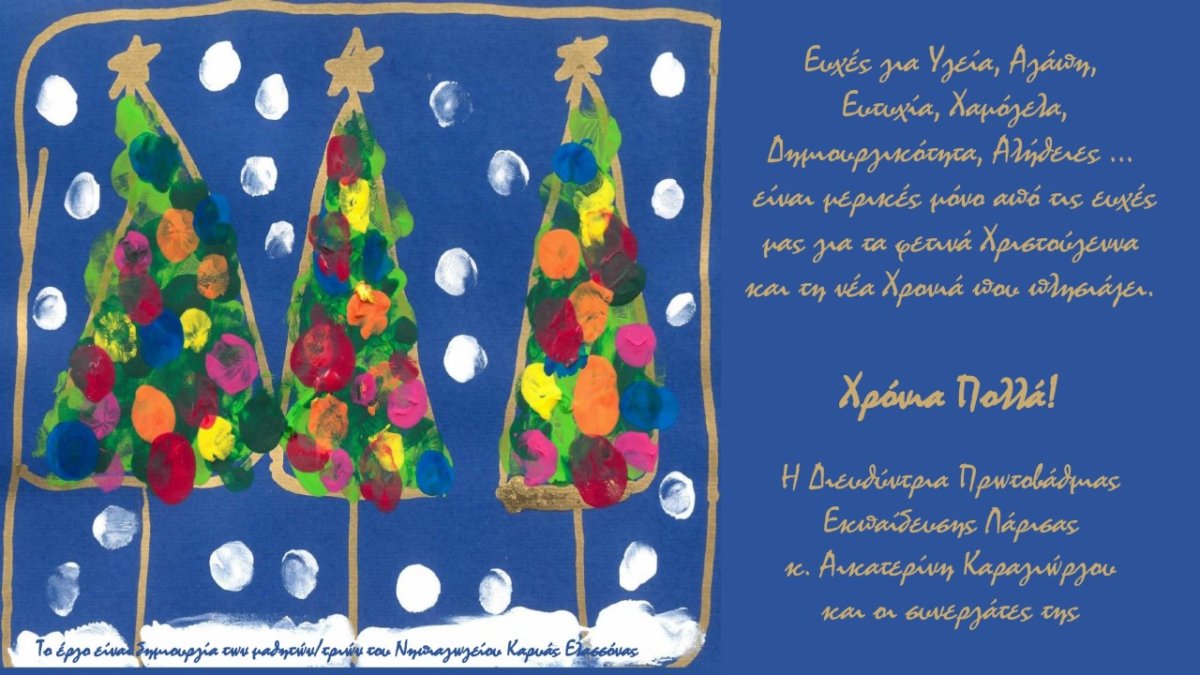 Ευχές για Υγεία, Αγάπη,
Ευτυχία, Χαμόγελα,
Δημιουργικότητα, Αλήθειες ...
είναι μερικές μόνο από τις ευχές
μας για τα φετινά Χριστούγεννα
και τη νέα Χρονιά που πλησιάζει.
Χρόνια Πολλά!
Η Διευθύντρια Πρωτοβάθμιας
Εκπαίδευσης Λάρισας
κ. Αικατερίνη Καραγιώργου
και οι συνεργάτες της
Το έργο είναι δημιουργία των μαθητών/τριών του Νηπιαγωγείου Καρυάς Ελασσόνας